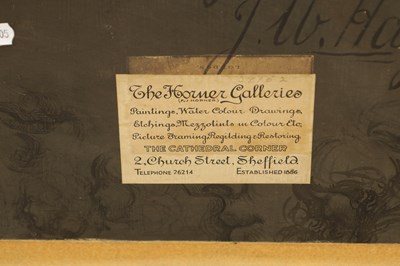 J W Ha
The Horner Galleries
(A.J. HORNER)
Paintings, Water Colour Drawings,
Etchings, Mezzotints in Colour Etc,
Picture Framing, Regilding & Restoring
THE CATHEDRAL CORNER
2, Church Street, Sheffield
TELEPHONE 26214 ESTABLISHED 1886